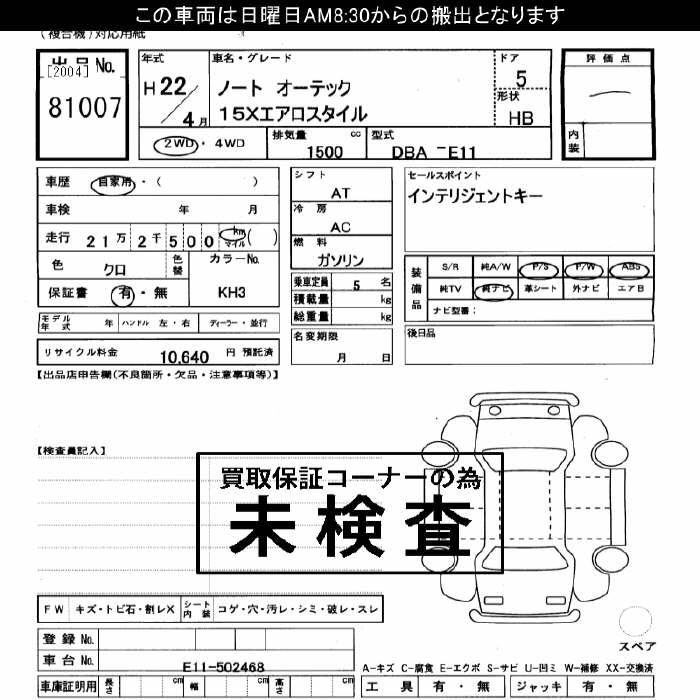 この車両は日曜日AM8:30からの搬出となります
(複合機)対応用紙
出品No. [2004] 81007
年式 H 22 / 4 月
車名・グレード ノート オーテック 15Xエアロスタイル
ドア 5
形状 HB
評価点
内装
2WD・4WD
排気量 1500 cc
型式 DBA E11
車歴 自家用・( )
車検 年 月
走行 21万2千500 km マイル ( )
色 クロ 色替
カラーNo. KH3
保証書 有・無
シフト AT
冷房 AC
燃料 ガソリン
乗車定員 5 名
積載量 kg
総重量 kg
名変期限 月 日
セールスポイント
インテリジェントキー
装備品
S/R 純A/W P/S P/W ABS
純TV 純ナビ 革シート 外ナビ エアB
ナビ型番:
後日品
モデル年式 年 ハンドル 左・右 ディーラー・並行
リサイクル料金 10,640 円 預託済
【出品店申告欄(不良箇所・欠品・注意事項等)】
【検査員記入】
買取保証コーナーの為
未検査
FW キズ・トビ石・割レX シート内装 コゲ・穴・汚レ・シミ・破レ・スレ
登録No.
車台No. E11-502468
車庫証明用 長さ cm 幅 cm 高さ cm
スペア
A-キズ C-腐食 E-エクボ S-サビ U-凹ミ W-補修 XX-交換済
工具 有・無 ジャッキ 有・無